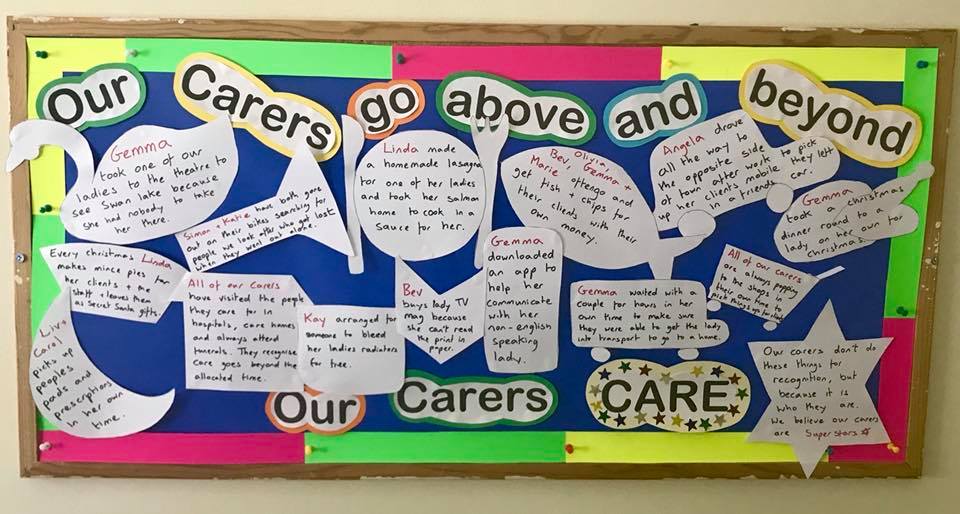 Our Carers go above and beyond
Gemma
took one of our
ladies to the theatre to
see Swan lake because
she had nobody to take
her there.
Simon + Katie have both gone
out on their bikes searching for
people we look after who get lost
when they went out alone.
Linda made
a homemade lasagna
for one of her ladies
and took her salmon
home to cook in a
sauce for her.
Olivia,
Bev, Gemma +
Marie often go and
get fish + chips for
their clients with their
own money.
Angela drove
all the way to
the opposite side
of town after work to pick
up her clients mobile they left
in a friends car.
Gemma
took a christmas
dinner round to a
lady on her own for
Christmas.
Every christmas Linda
makes mince pies for
her clients + the
staff + leaves them
as Secret Santa gifts.
Liv +
Carol
picks up
peoples
pads and
prescriptions
in her own
time.
All of our carers
have visited the people
they care for in
hospitals, care homes
and always attend
funerals. They recognise
care goes beyond the
allocated time.
Kay arranged for
someone to bleed
her ladies radiators
for free.
Bev
buys lady TV
mag because
she can't read
the print in
paper.
Gemma
downloaded
an app to
help her
communicate
with her
non-english
speaking
lady.
Gemma waited with
couple for hours in her
own time to make sure
they were able to get the lady
into transport to go to a home.
All of our carers
are always popping
to the shops in
their own time to
pick things up for
Our carers don't do
these things for
recognition, but
because it is
who they are.
We believe our carers
are Superstars
Our Carers CARE